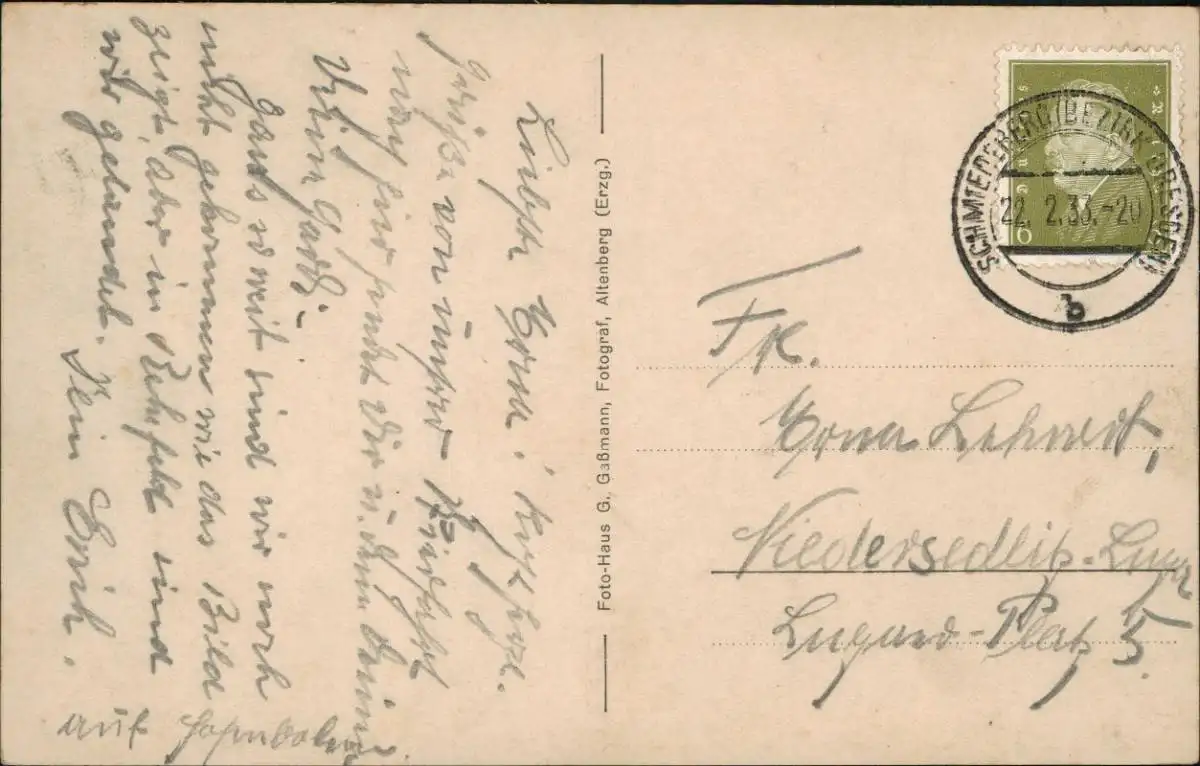 Liebste Erna! herzl.
Grüße von unsrer Skifahrt
nach hier sendet Dir u. den Deinen
Dein
Ganz so weit sind wir noch
nicht gekommen wie das Bild
zeigt, aber in Rehefeld sind
wir gelandet. Dein Erich.
auf
Foto-Haus G. Gaßmann, Fotograf, Altenberg (Erzg.)
SCHMIEDEBERG (BEZIRK DRESDEN)
22. 2.33.-20
b
6
Frl.
Erna Lehnert,
Niedersedlitz-Luga
Lugaer-Platz 5.